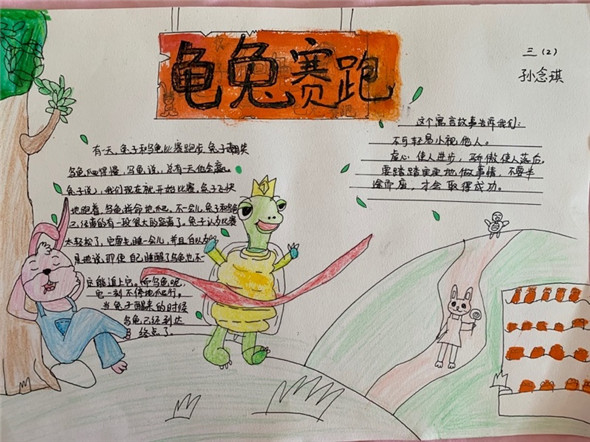 龟兔赛跑
三（2）
孙念琪
有一天，兔子和乌龟比赛跑步，兔子嘲笑
乌龟爬得慢，乌龟说，总有一天他会赢。
兔子说，我们现在就开始比赛，兔子飞快
地跑着，乌龟拼命地爬，不一会儿，兔子和乌龟
已经离的有一段很大的距离了。兔子认为比赛
太轻松了，它要先睡一会儿，并且自以为
是地说，即使自己睡醒了乌龟也不一
定能追上它。而乌龟呢，
它一刻不停地爬行，
当兔子醒来的时候
乌龟已经到达
终点了。
这个寓言故事告诉我们：
不可轻易小视他人。
虚心使人进步，骄傲使人落后，
要踏踏实实地做事情，不要半
途而废，才会取得成功。